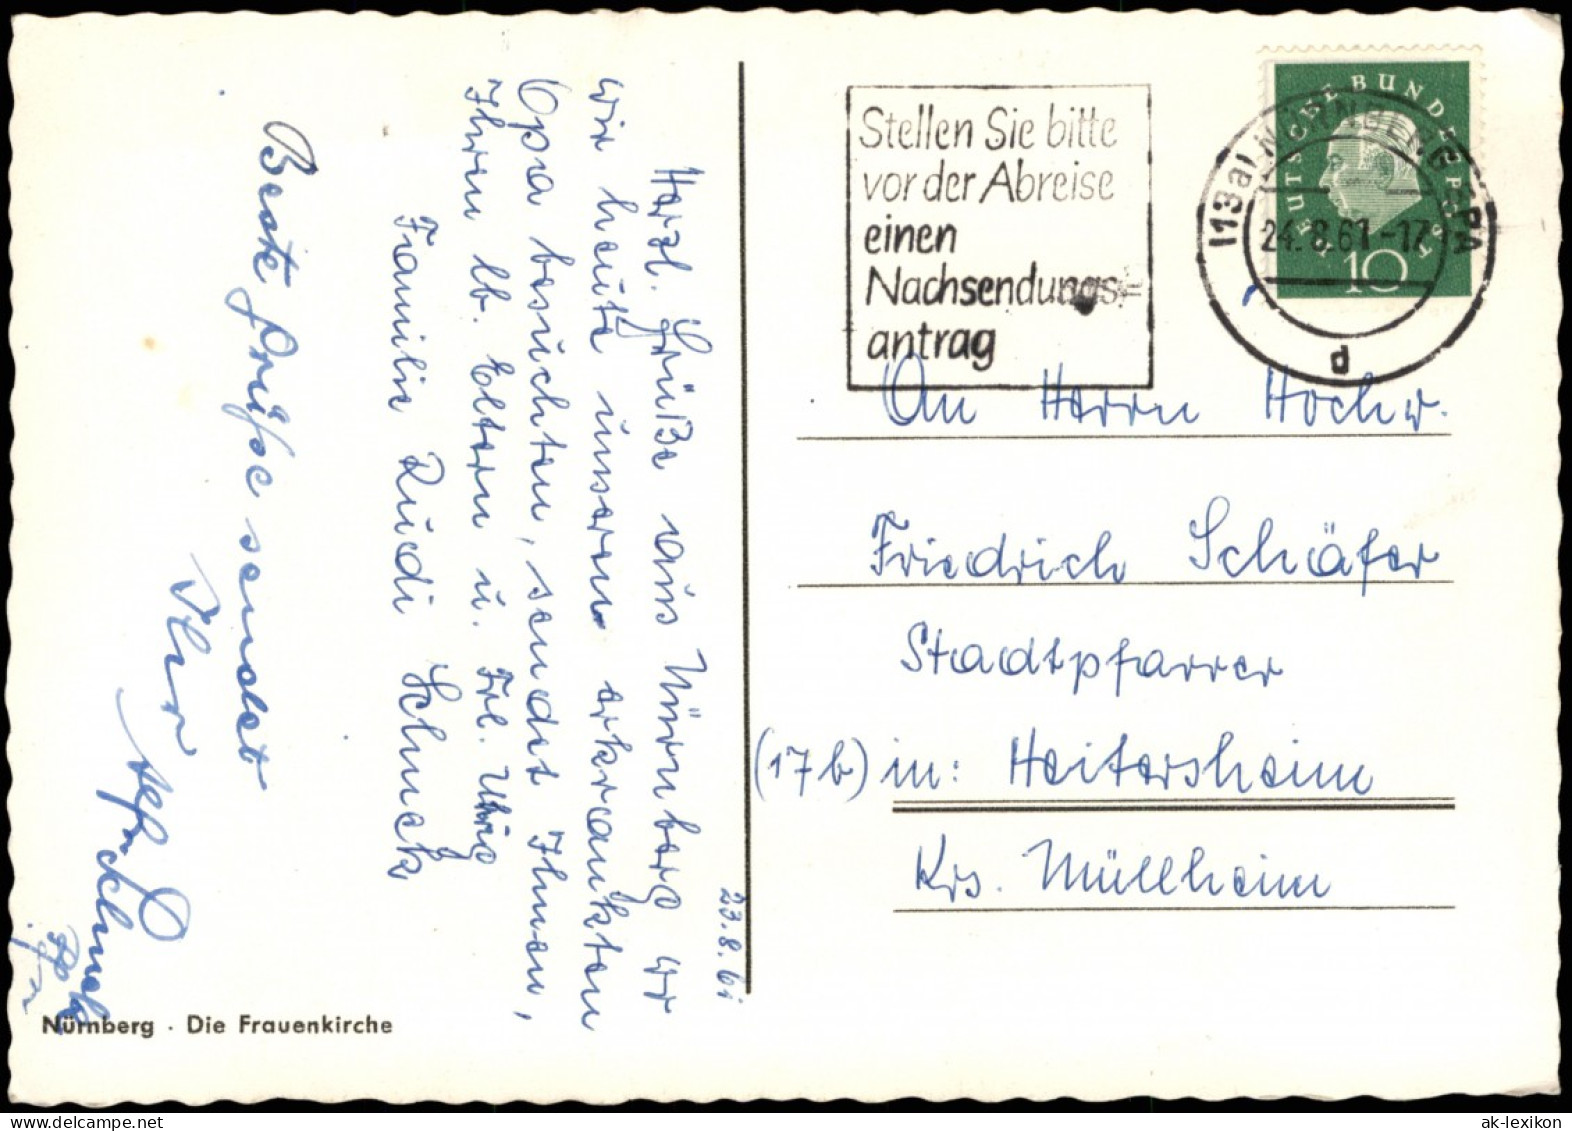 23.8.61
Herzl. Grüße aus Nürnberg wo
wir heute unseren erkrankten
Opa besuchten, sendet Ihnen,
Ihren lb. Eltern u. Frl. Uhrig
Familie Rudi Schneck
Beste Grüße sendet
Ihr
Schneck
Nürnberg · Die Frauenkirche
Stellen Sie bitte
vor der Abreise
einen
Nachsendungs=
antrag
DEUTSCHE BUNDESPOST
10
(13a) NÜRNBERG BPA
24.8.61.-17
d
An Herrn Hochw.
Friedrich Schäfer
Stadtpfarrer
(17b) in: Heitersheim
Krs. Müllheim
ak-lexikon